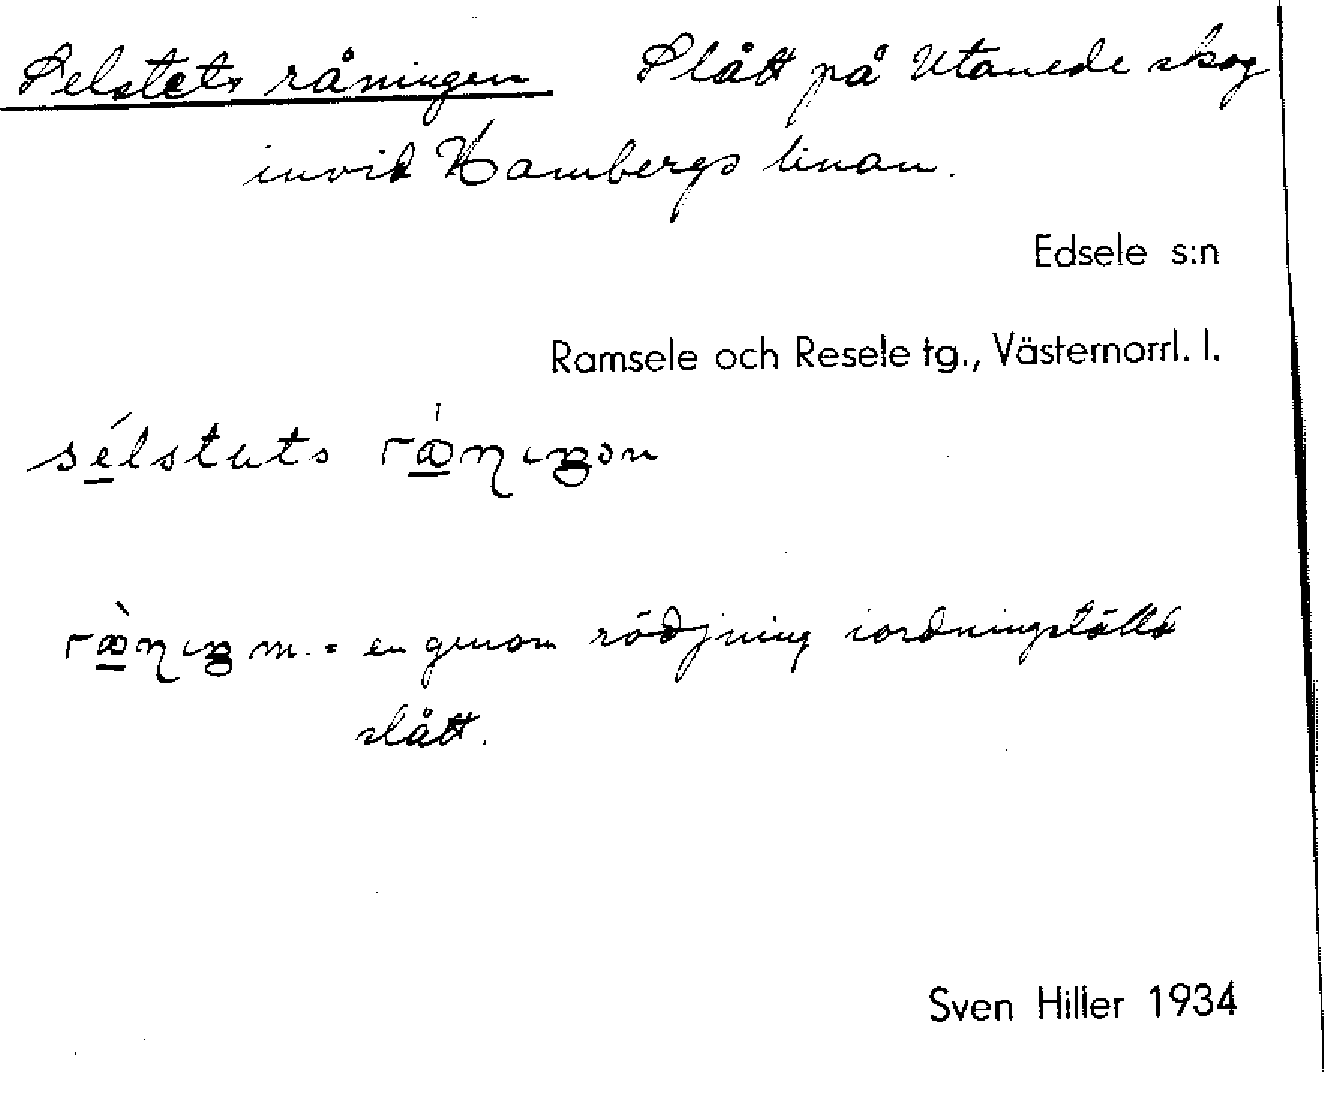 Selstets råningen Slått på Utanede skog
invid Hambergs linan.
Edsele s:n
Ramsele och Resele tg., Västernorrl. l.
sélstuts
m. = en genom rödjning iordningställd
slått.
Sven Hiller 1934